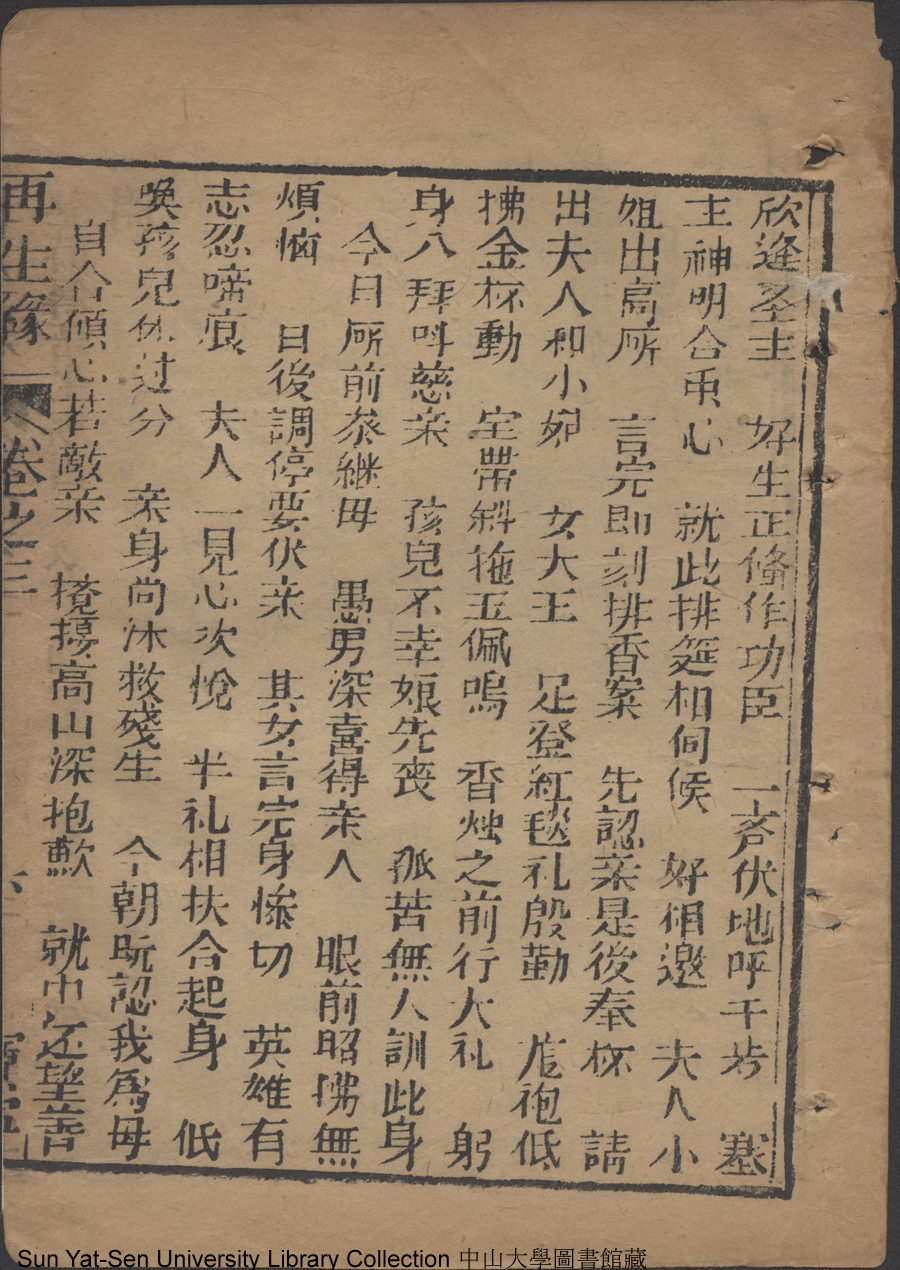 欣逢圣主 好生正俻作功臣 一斉伏地呼千歩 塞
主神明合重心 就此排筵相伺候 好相邀 夫人小
姐出高所 言完即刻排香案 先認亲是後奉杯 請
出夫人和小卵 女大王 足登紅毯礼殷勤 袍低
拂金杯動 宝帶斜拖玉佩鳴 香烛之前行大礼 躬
身八拜呌慈亲 孩兒不幸娘先丧 孤苦無人訓此身
今日所前叅継毋 愚男深喜得亲人 眼前昭拂無
煩惱 日後調停要伏亲 其女言完身慘切 英雄有
志忍啼痕 夫人一見心次悅 半礼相扶合起身 低
喚孩兒休过分 亲身尚沐救殘生 今朝既認我為毋
自合傾心若敵亲 攪擾高山深抱歉 就中还望善
再生緣 卷之三
Sun Yat-Sen University Library Collection 中山大學圖書館藏